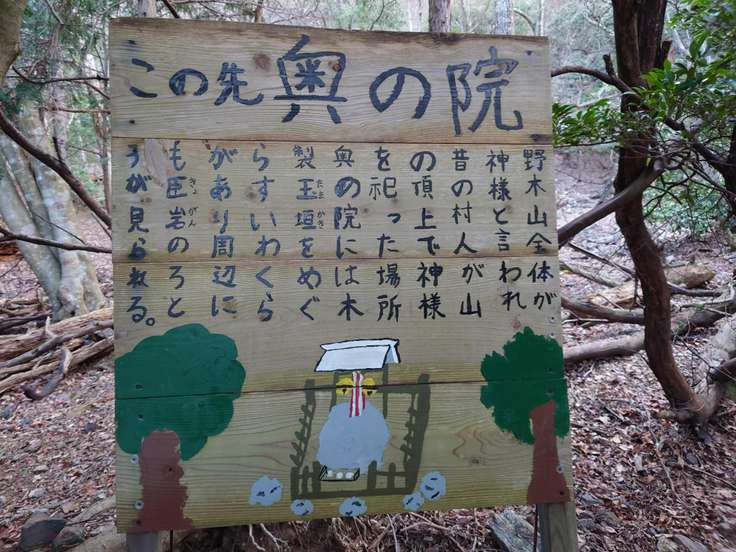 この先奥の院
野木山全体が
神様と言われ
昔の村人が山
の頂上で神様
を祀った場所
奥の院には木
製玉垣をめぐ
たまかき
らすいわくら
があり周辺に
も臣岩のろと
きょがん
うが見られる。